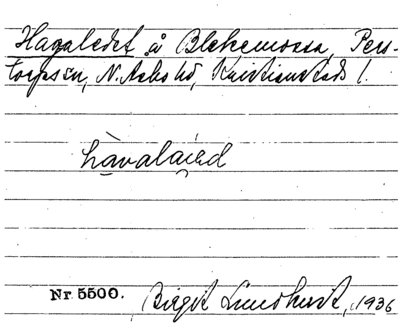 Hagaledet å Blekemossa, Pers-
torps sn, N. Åsbo hd, Kristianstads l.
hàvalaiəd
Nr 5500. Birgit Lundkvist, 1936